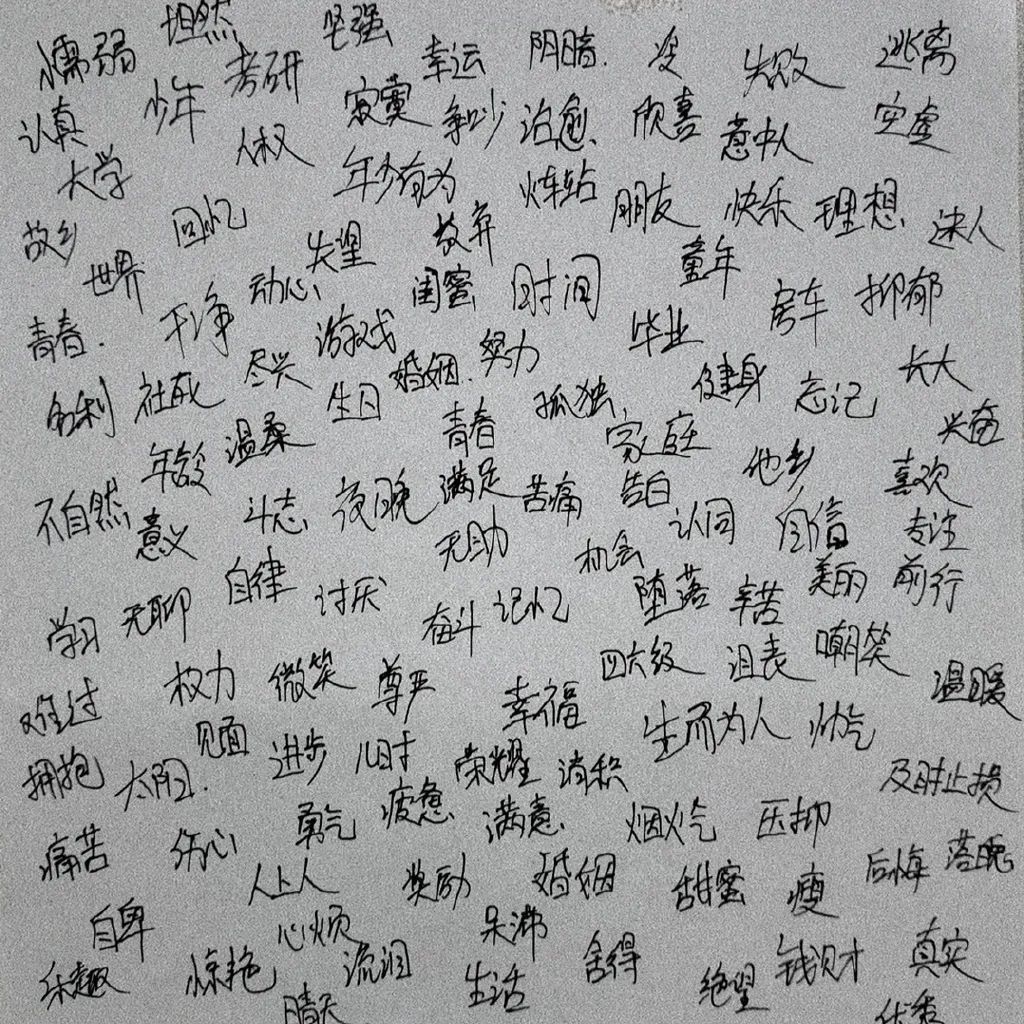 懦弱 坦然 坚强 幸运 阴暗 没 失败 逃离
认真 少年 考研 寂寞 争吵 治愈 欣喜 意中人 空虚
大学 人权 年少有为 炸站 朋友 快乐 理想 迷人
故乡 回忆 失望 放弃 童年
世界 动心 闺蜜 时间 房车 抑郁
青春 干净 游戏 努力 毕业
名利 社死 尽兴 生日 婚姻 孤独 健身 忘记 长大
年龄 温柔 青春 家庭 他乡 兴奋
不自然 斗志 夜晚 满足 苦痛 告白 喜欢
意义 无助 机会 认同 自信 专注
自律 讨厌 堕落 辛苦 美丽 前行
学习 无聊 奋斗 记忆
难过 权力 微笑 尊严 幸福 四六级 嘲笑 温暖
见面 进步 儿时 荣耀 消积 生而为人 帅气
拥抱 太阳 疲惫 满意 烟火气 压抑 及时止损
痛苦 伤心 勇气
人上人 奖励 婚姻 甜蜜 瘦 后悔 落魄
自卑 心烦
乐趣 惊艳 流泪 生活 舍得 绝望 真实
晴天 优秀